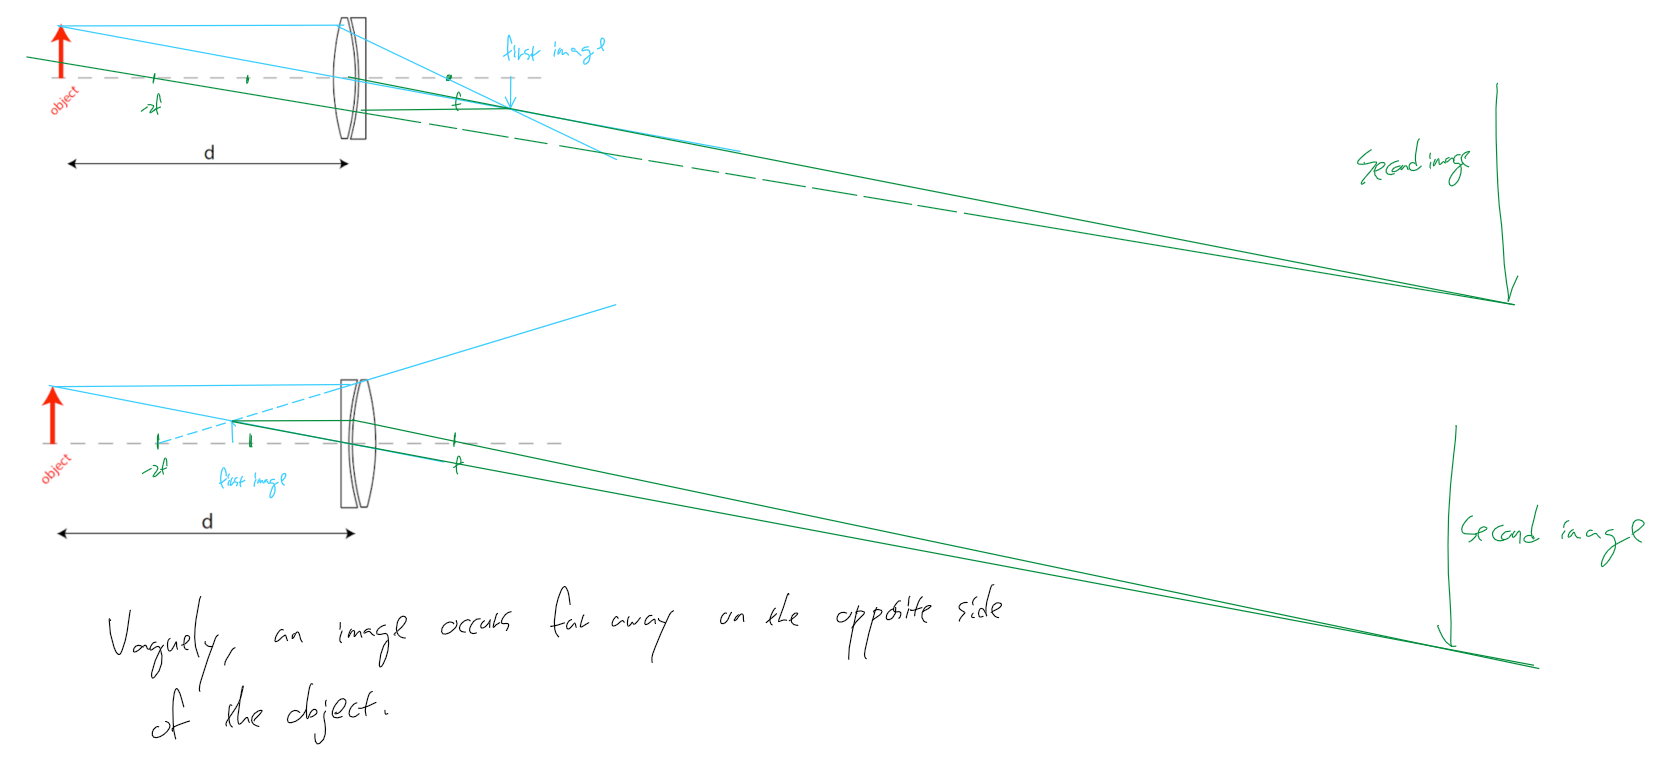 first image
object
-2f
f
d
Second image
object
-2f
first image
f
d
Second image
Vaguely, an image occurs far away on the opposite side
of the object.